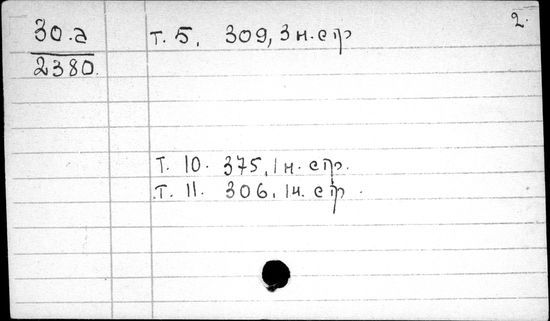 2.
30.а
2380.
т. 5. 309, 3 н. стр
т. 10. 375, 1 н. стр.
т. 11. 306, 1 н. стр.